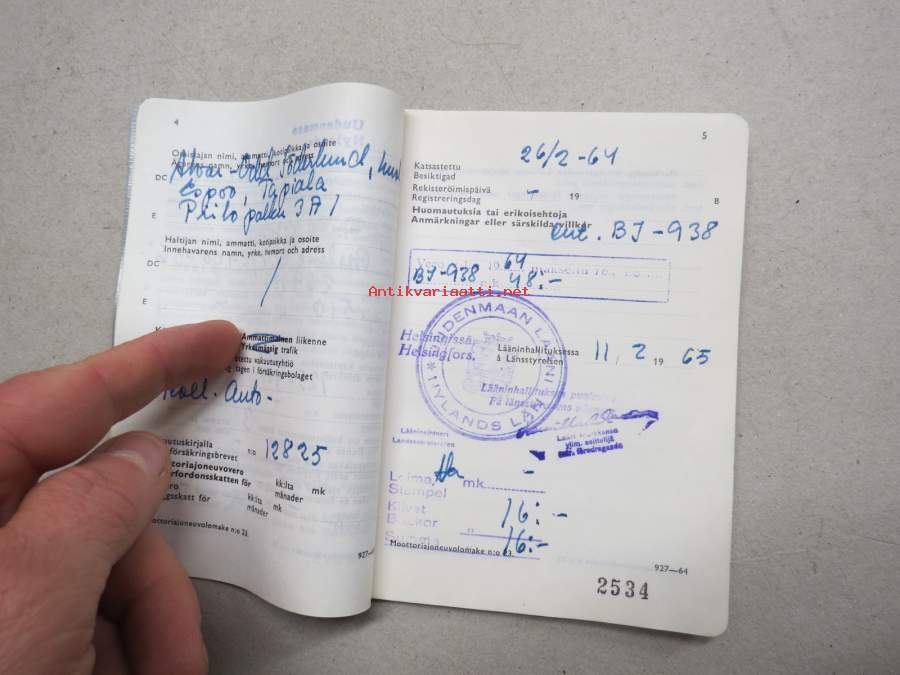 4
Omistajan nimi, ammatti, kotipaikka ja osoite
Ägarens namn, yrke, hemort och adress
DC
Espoo, Tapiola
3 A 1
E
Haltijan nimi, ammatti, kotipaikka ja osoite
Innehavarens namn, yrke, hemort och adress
DC
E
Ammattimainen liikenne
Yrkesmässig trafik
vakuutusyhtiö
tagen i försäkringsbolaget
Auto-
utuskirjalla
försäkringsbrevet n:o 12825
toriajoneuvovero
rfordonsskatten för kk:lta mk
månader
ro
gsskatt för kk:lta mk
månader
Moottoriajoneuvolomake n:o 23.
927—64
5
Katsastettu
Besiktigad 26/2-64
Rekisteröimispäivä
Registreringsdag - 19
B
Huomautuksia tai erikoisehtoja
Anmärkningar eller särskilda villkor
ent. BJ-938
64
BJ-938 48:-
Antikvariaatti.net
UUDENMAAN LÄÄNI
NYLANDS LÄN
Helsingissä,
Helsingfors,
Lääninhallituksessa
å Länsstyrelsen 11, 2 19 65
Lääninhallituksen puolesta
På länsstyrelsens
Lääninsihteeri
Landssekreterare
ylim. esittelijä
extra föredragande
Leima, mk -
Stämpel
Kilvet
Brickor " 16:-
Summa 16:-
Moottoriajoneuvolomake n:o 23.
927—64
2534